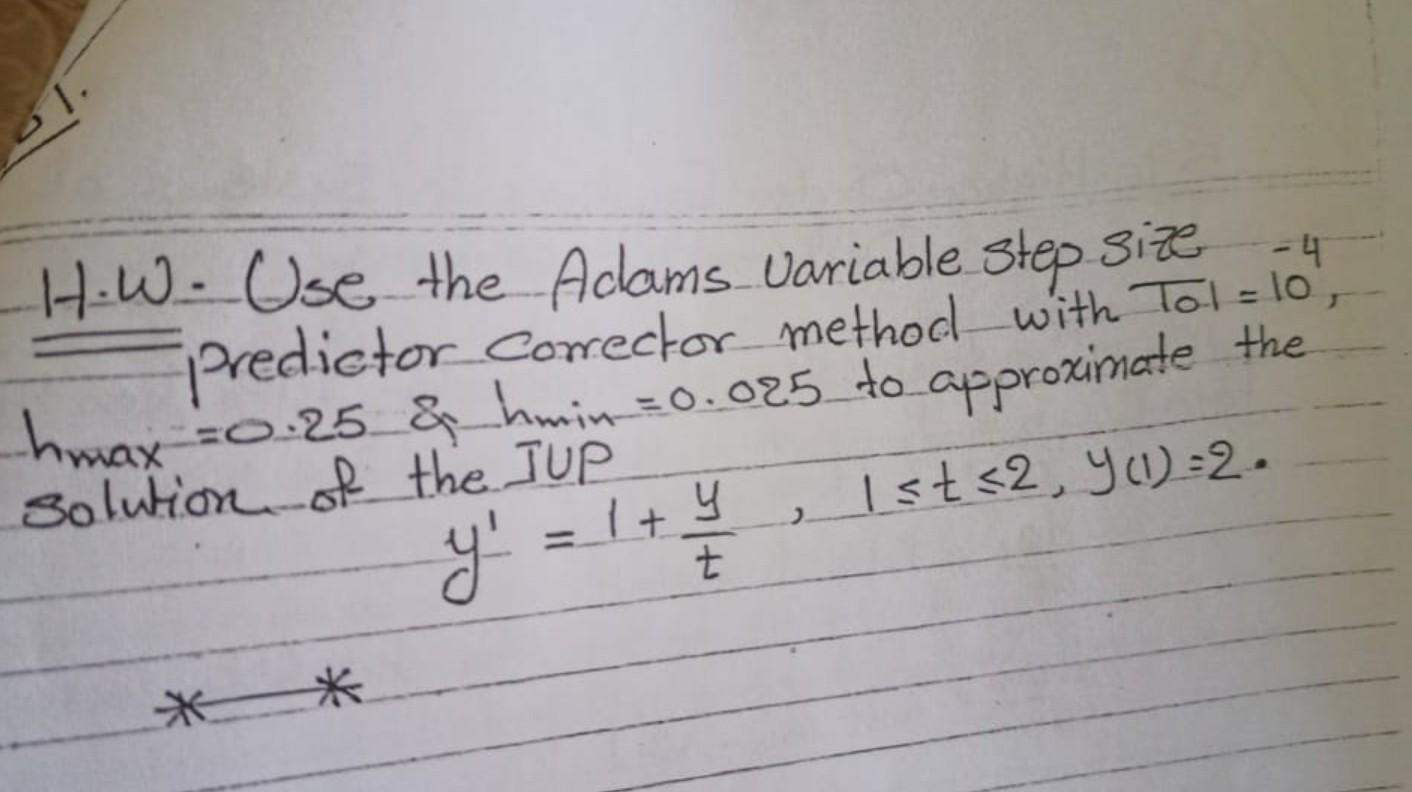 1.
H.W. Use the Adams Variable step size
predictor corrector method with Tol = 10⁻⁴,
hmax = 0.25 & hmin = 0.025 to approximate the
solution of the IVP
y' = 1 + y/t , 1 ≤ t ≤ 2, y(1) = 2.